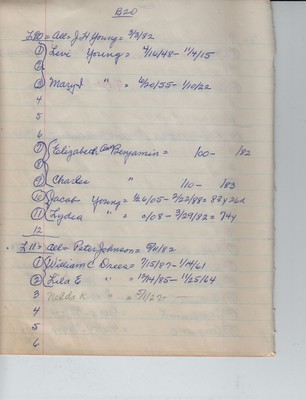 B20
L10 = All = J.H Young = 3/3/82
1 Levi Young = 4/16/48 - 11/4/15
2
3 Mary J " = 6/20/55 - 1/10/22
4
5
6
7 Elizabeth Benjamin = /00 - /82
8
9 Charles " /10 - /83
10 Jacob Young = 1/26/05 - 2/22/88 = 83y 26d
11 Lydea " = /08 - 3/29/82 = 74y
12
L11 = All = Peter Johnson = 5/4/82
1 William C. Drees = 7/15/87 - 1/14/61
2 Lila E " = 12/24/85 - 11/25/64
3 Nelda K " = 5/1/27 -
4
5
6